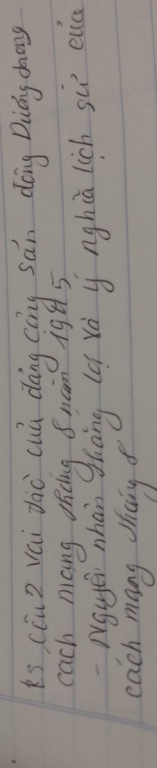 ts câu2 vai trò của đảng cộng sản đông Dương trong
cách mạng tháng 8 năm 1945
- Nguyên nhân thắng lợi và ý nghĩa lịch sử của
cách mạng tháng 8